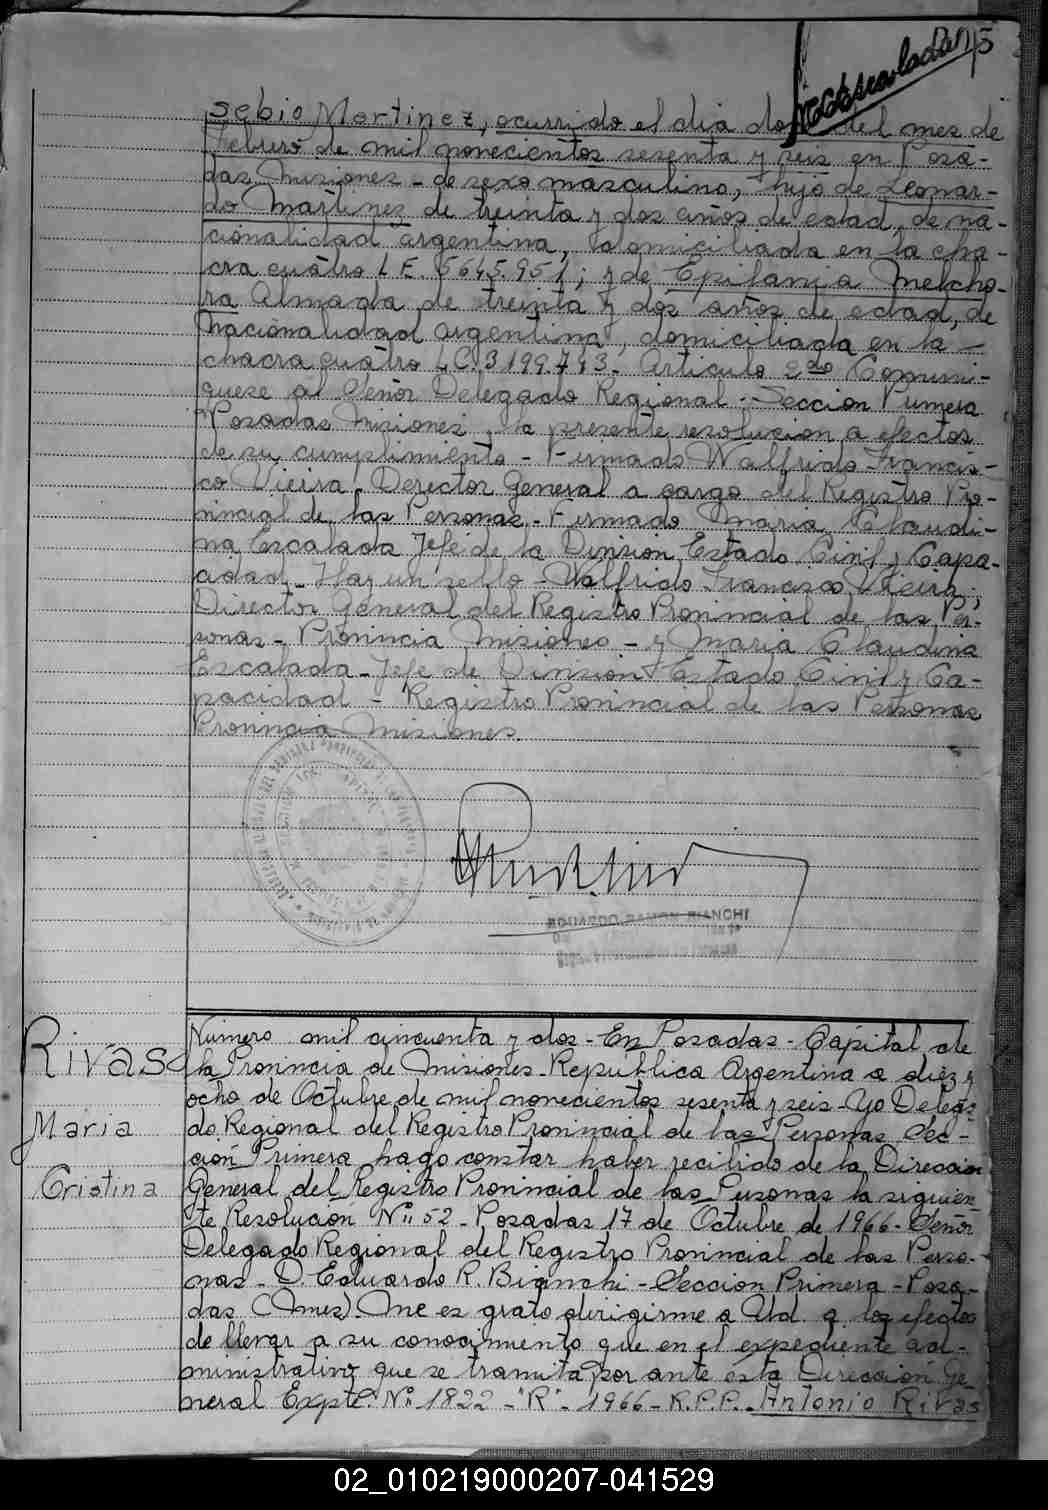 5
sebio Martinez, ocurrido el dia dos del mes de
Febrero de mil novecientos sesenta y seis en Posa-
das Misiones - de sexo masculino, hijo de Leonar-
do Martinez de treinta y dos años de edad, de na-
cionalidad argentina, domiciliada en la cha-
cra cuatro L E. 5645.951; y de Epifania Melcho-
ra Almada de treinta y dos años de edad, de
nacionalidad argentina, domiciliada en la -
chacra cuatro L.C. 3.199.743 - Articulo 2do Comuni-
quese al Señor Delegado Regional - Seccion Primera
Posadas Misiones la presente resolucion a efectos
de su cumplimiento - Firmado Walfrido Francis-
co Vieira. Director General a cargo del Registro Pro-
vincial de las Personas - Firmado Maria Claudi-
na Escalada Jefe de la Division Estado Civil y Capa-
cidad - Hay un sello - Walfrido Francisco Vieira -
Director General del Registro Provincial de las Per-
sonas - Provincia Misiones - y Maria Claudina
Escalada - Jefe de Division Estado Civil y Ca-
pacidad - Registro Provincial de las Personas
Provincia Misiones.
EDUARDO RAMON BIANCHI
Rivas
Maria
Cristina
Número mil cincuenta y dos - En Posadas - Capital de
la Provincia de Misiones - Republica Argentina a diez y
ocho de Octubre de mil novecientos sesenta y seis - Yo Delega-
do Regional del Registro Provincial de las Personas Sec-
cion Primera hago constar haber recibido de la Direccion
General del Registro Provincial de las Personas la siguien-
te Resolución Nº 52 - Posadas 17 de Octubre de 1966 - Señor
Delegado Regional del Registro Provincial de las Perso-
nas - D. Eduardo R. Bianchi - Seccion Primera - Posa-
das (Mnes). Me es grato dirigirme a Ud. a los efectos
de llevar a su conocimiento que en el expediente ad-
ministrativo que se tramita por ante esta Direccion Ge-
neral Expte. Nº 1822 - "R" - 1966 - R.P.P. - Antonio Rivas
02_010219000207-041529